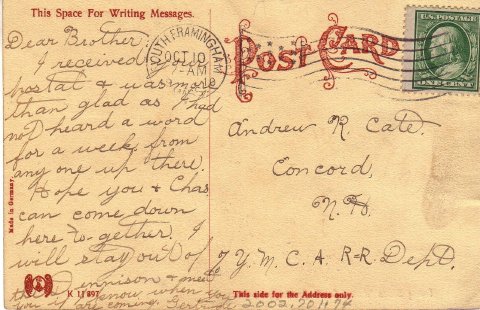 This Space For Writing Messages.
Dear Brother,
I received
postal & was more
than glad as I had
not heard a word
for a week from
any one up there.
Hope you & Chas
can come down
here to-gether. I
will stay out of
Dennison & meet
know when you
you if are coming. Gertrude
Made in Germany.
K 11 897
SOUTH FRAMINGHAM
OCT 10
7-AM
POST CARD
U.S. POSTAGE
ONE CENT
Andrew R. Cate.
Concord,
N. H.
Y. M. C. A R-R. Dept.
This side for the Address only.
2002.20.11.94